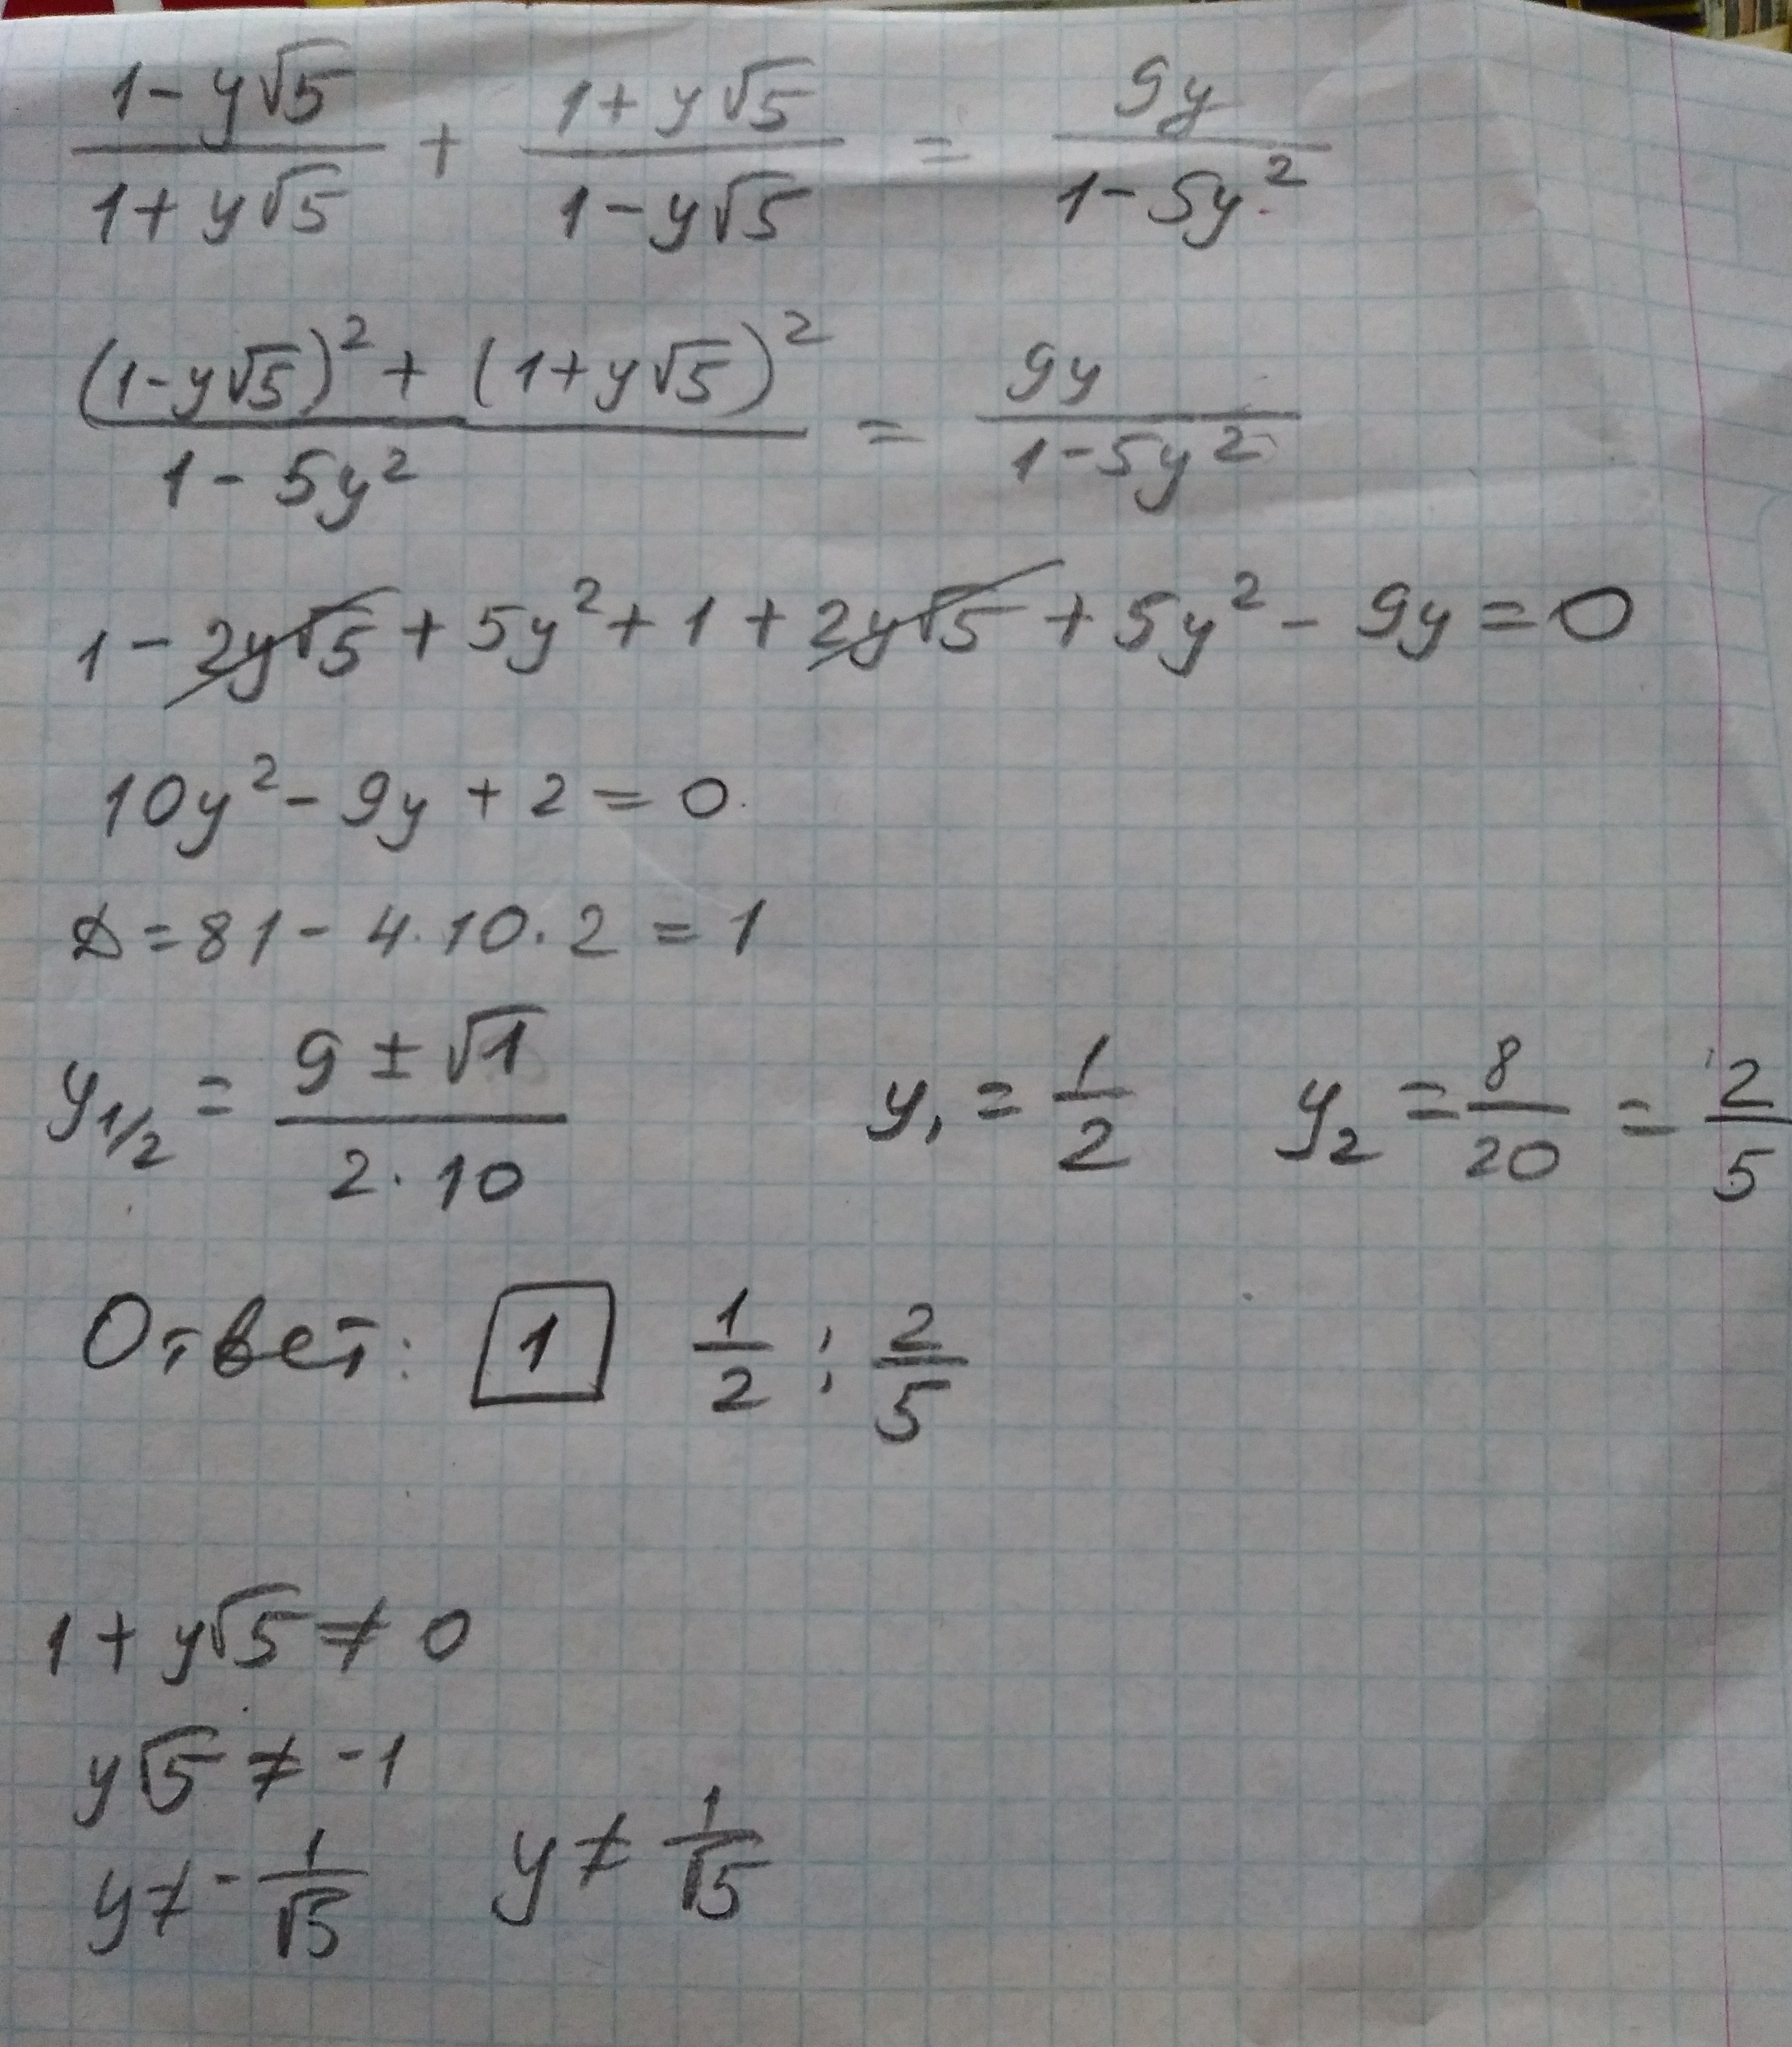 (1-y√5)/(1+y√5) + (1+y√5)/(1-y√5) = 9y/(1-5y²)
((1-y√5)² + (1+y√5)²)/(1-5y²) = 9y/(1-5y²)
1 - 2y√5 + 5y² + 1 + 2y√5 + 5y² - 9y = 0
10y² - 9y + 2 = 0
D = 81 - 4·10·2 = 1
y1/2 = (9 ± √1)/(2·10) y₁ = 1/2 y₂ = 8/20 = 2/5
Ответ: 1 1/2 ; 2/5
1 + y√5 ≠ 0
y√5 ≠ -1
y ≠ -1/√5 y ≠ 1/√5